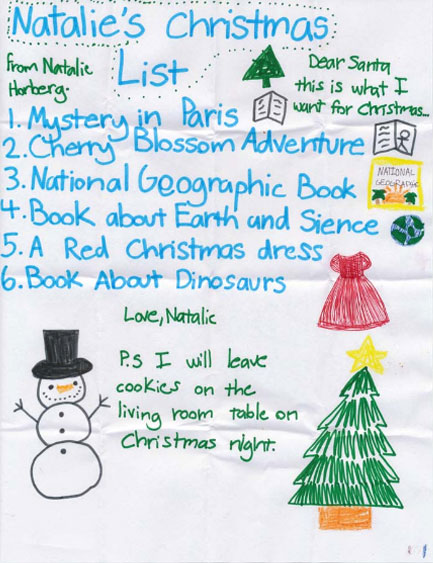 Natalie's Christmas
List
from Natalie
Horberg.
Dear Santa
this is what I
want for Christmas...
1. Mystery in Paris
2. Cherry Blossom Adventure
3. National Geographic Book
NATIONAL
GEOGRAPHIC
4. Book about Earth and Sience
5. A Red Christmas dress
6. Book About Dinosaurs
Love, Natalie
P.S I will leave
cookies on the
living room table on
Christmas night.